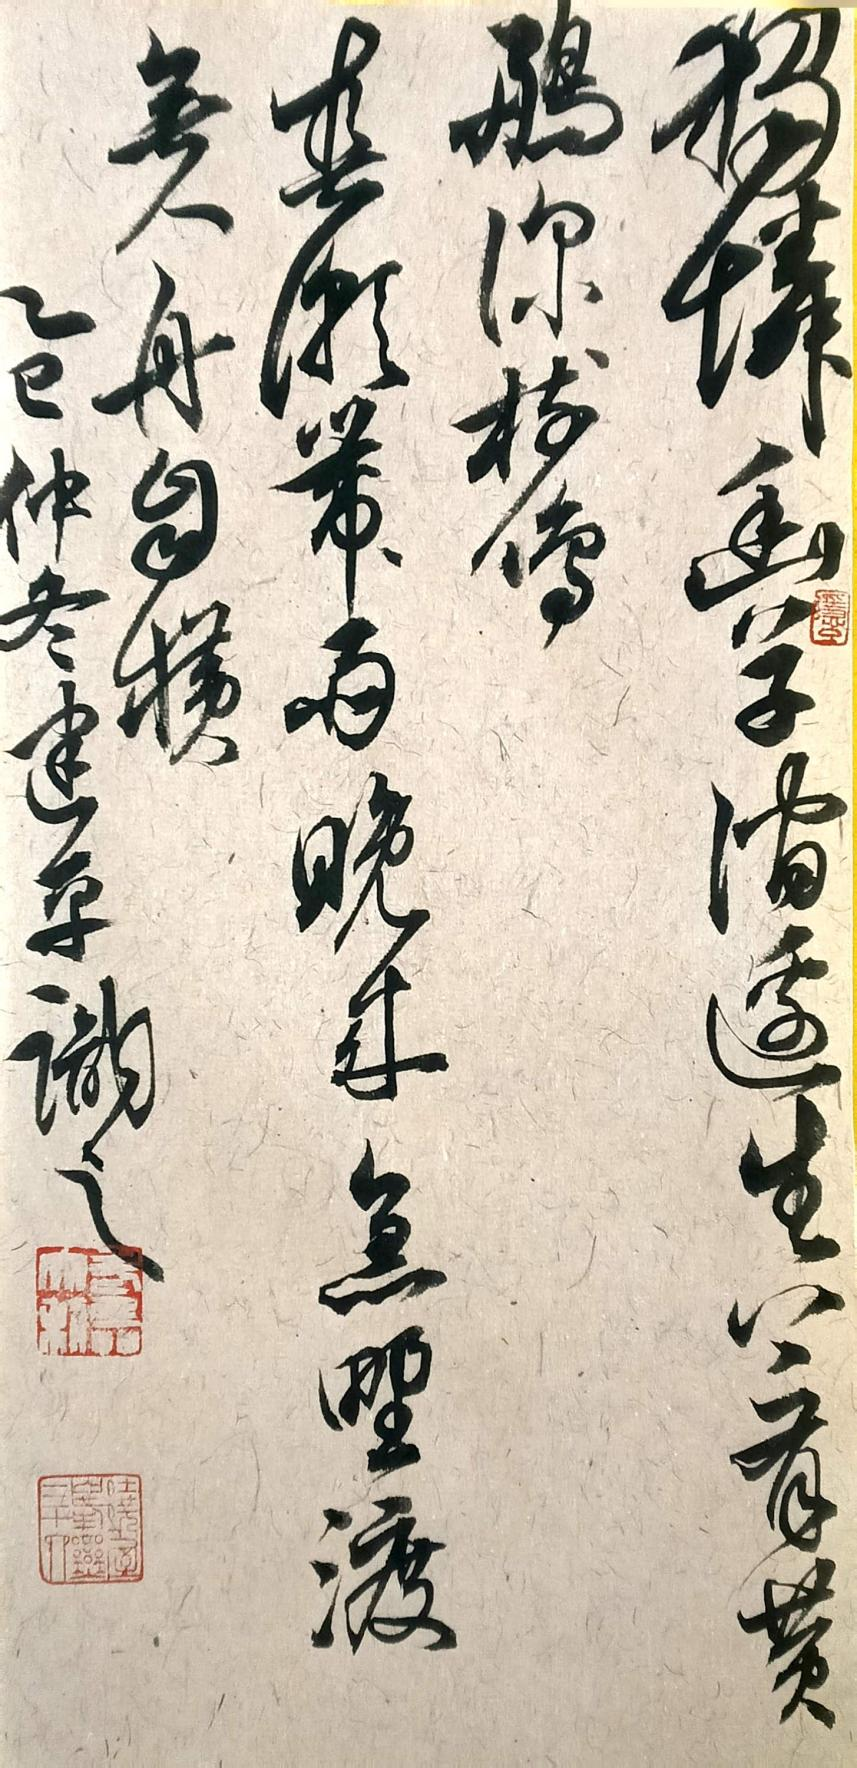 獨憐幽草澗邊生上有黃
鸝深樹鳴
春潮帶雨晚來急野渡
無人舟自橫
乙巳仲冬建平識之